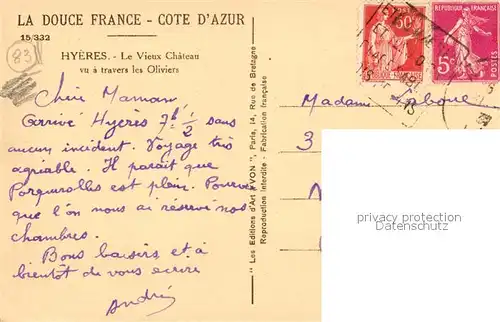 LA DOUCE FRANCE - COTE D'AZUR
15/332
83
HYÈRES. - Le Vieux Château
vu à travers les Oliviers
Chère Maman,
Arrivé Hyères 7h 1/2 sans
aucun incident. Voyage très
agréable. Il parait que
Porquerolles est plein. Pourvu
que l'on nous ai réservé nos
chambres.
Bons baisers et à
bientôt de vous écrire
André
" Les Editions d'Art "YVON", Paris, 14, Rue de Bretagne
Reproduction Interdite - Fabrication française
50c
5c
POSTES
Madame
3
privacy protection
Datenschutz